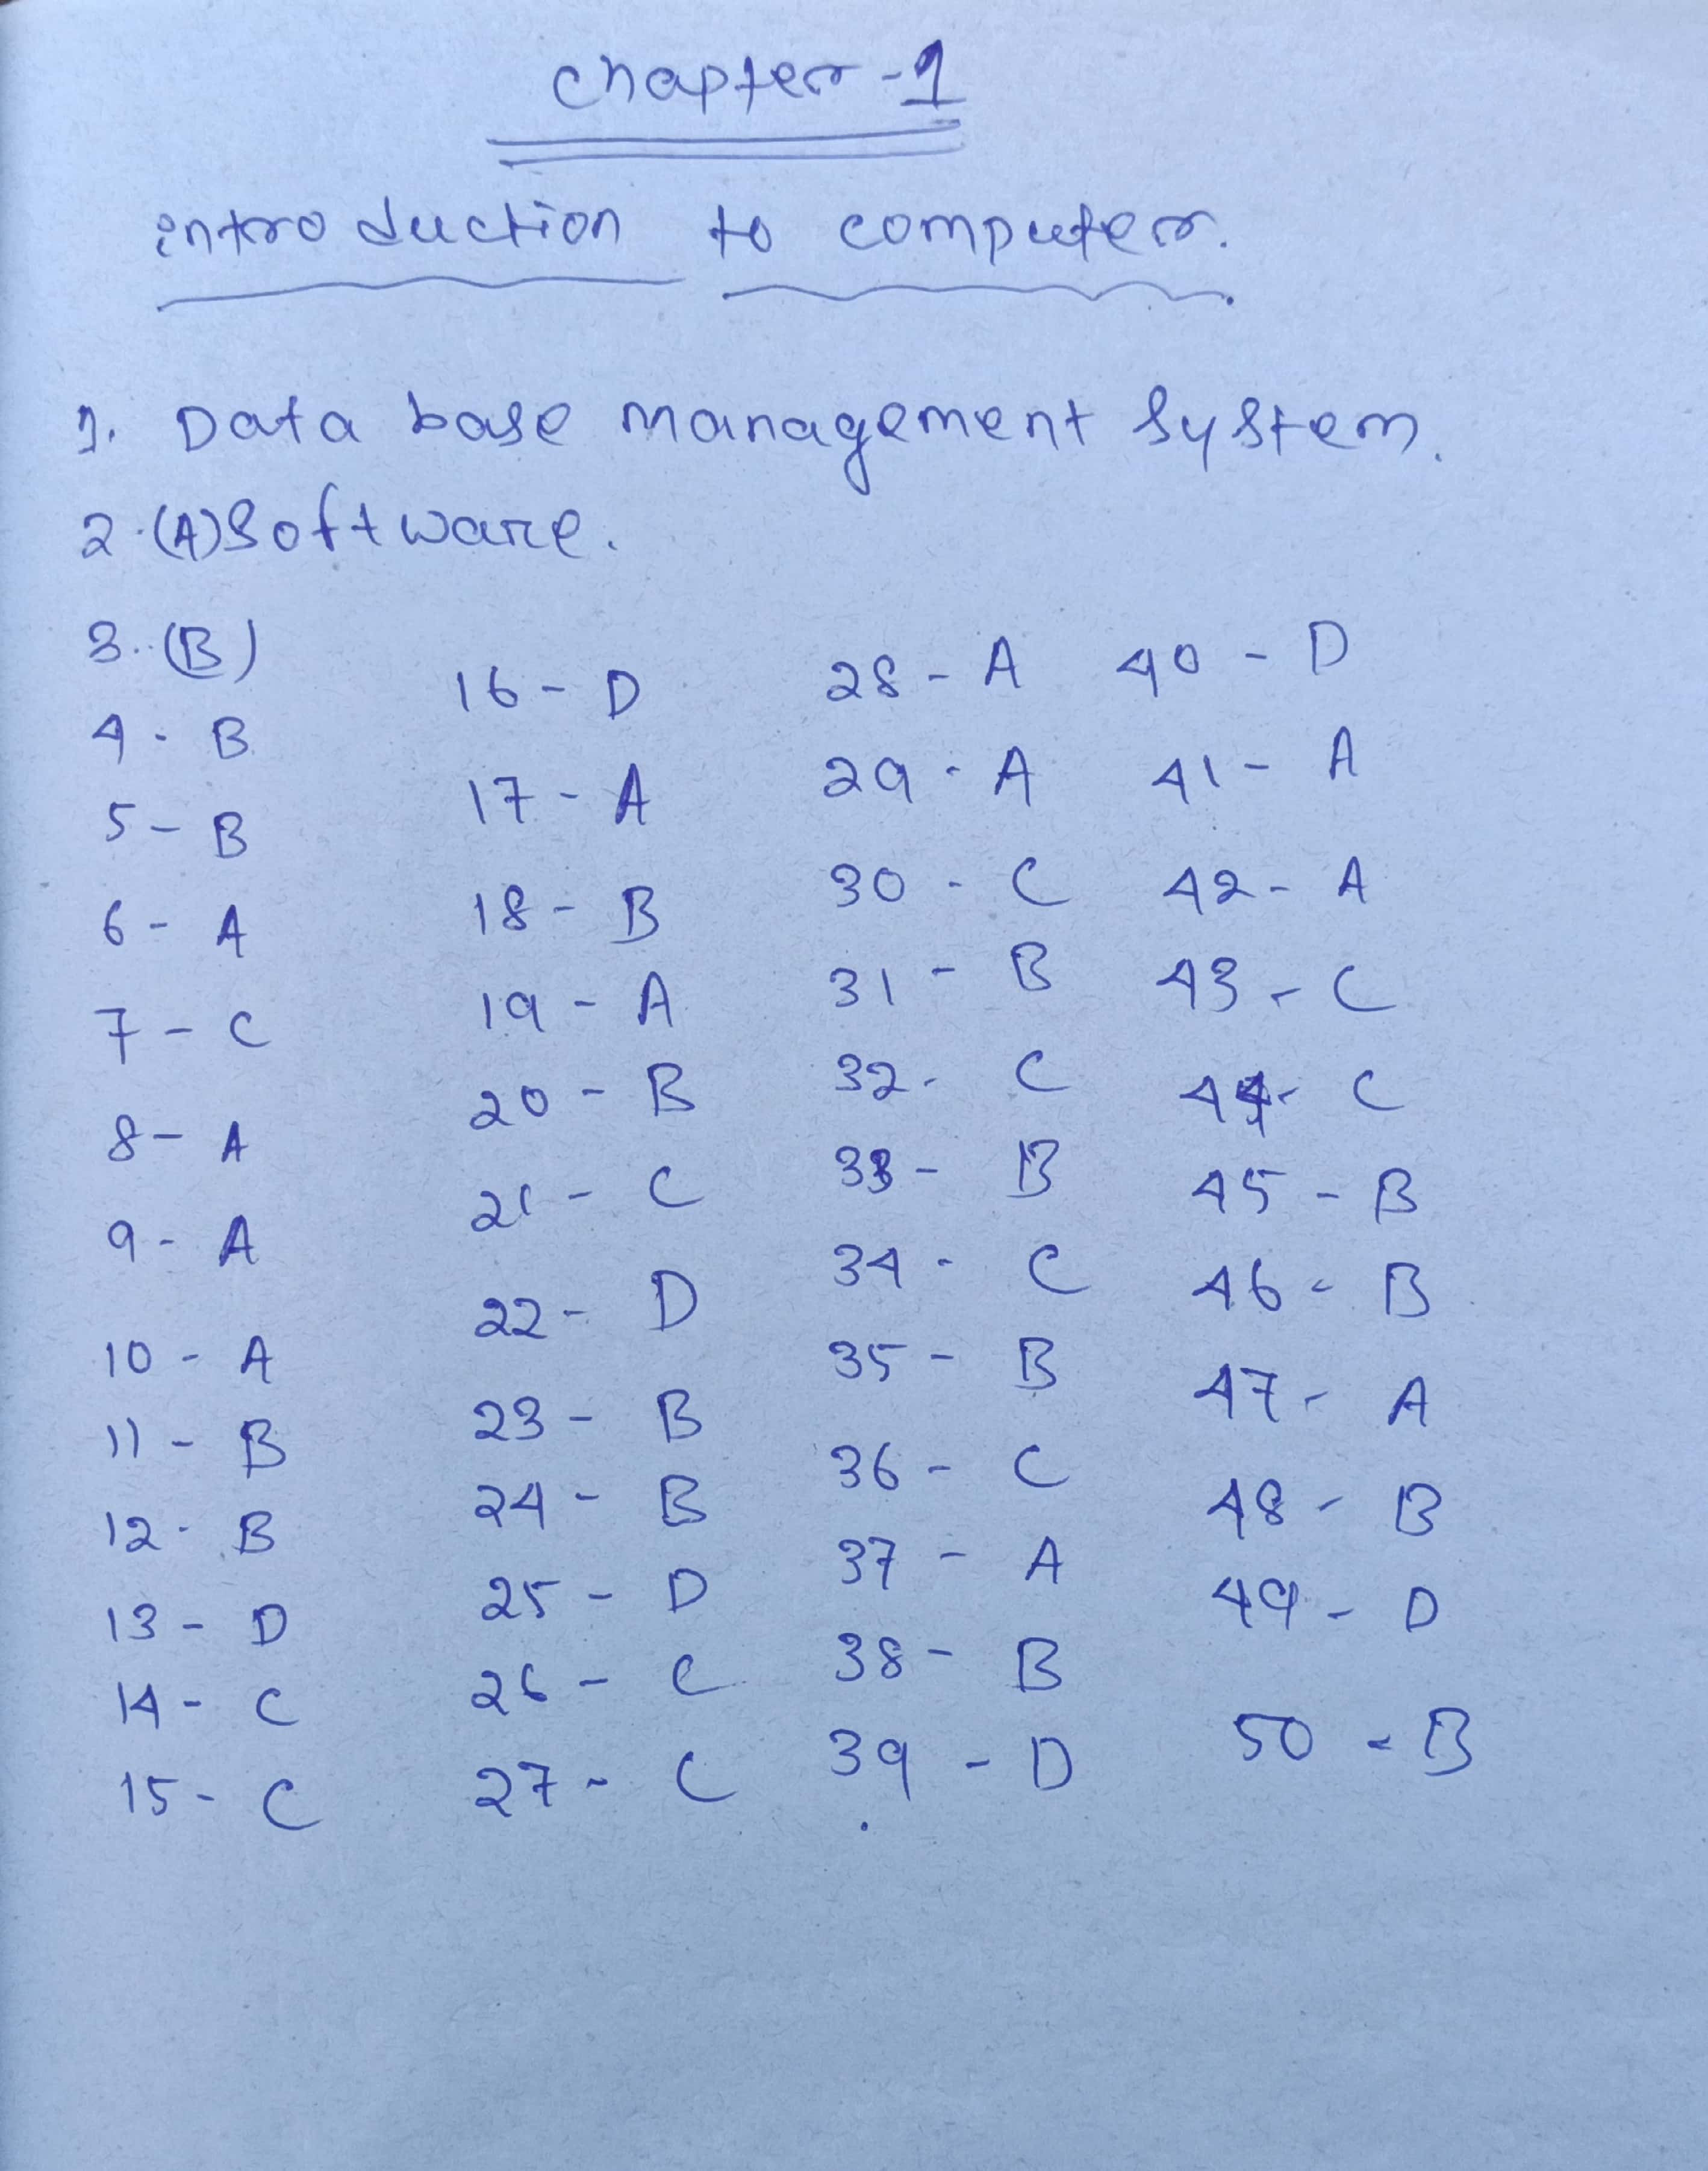 chapter-1
introduction to computer.
1. Data base management system.
2.(A)Software.
3.(B)
4. B
5- B
6- A
7- C
8- A
9- A
10- A
11- B
12- B
13- D
14- C
15- C
16- D
17- A
18- B
19- A
20- B
21- C
22- D
23- B
24- B
25- D
26- C
27- C
28- A
29- A
30- C
31- B
32- C
33- B
34- C
35- B
36- C
37- A
38- B
39- D
40- D
41- A
42- A
43- C
44- C
45- B
46- B
47- A
48- B
49- D
50- B